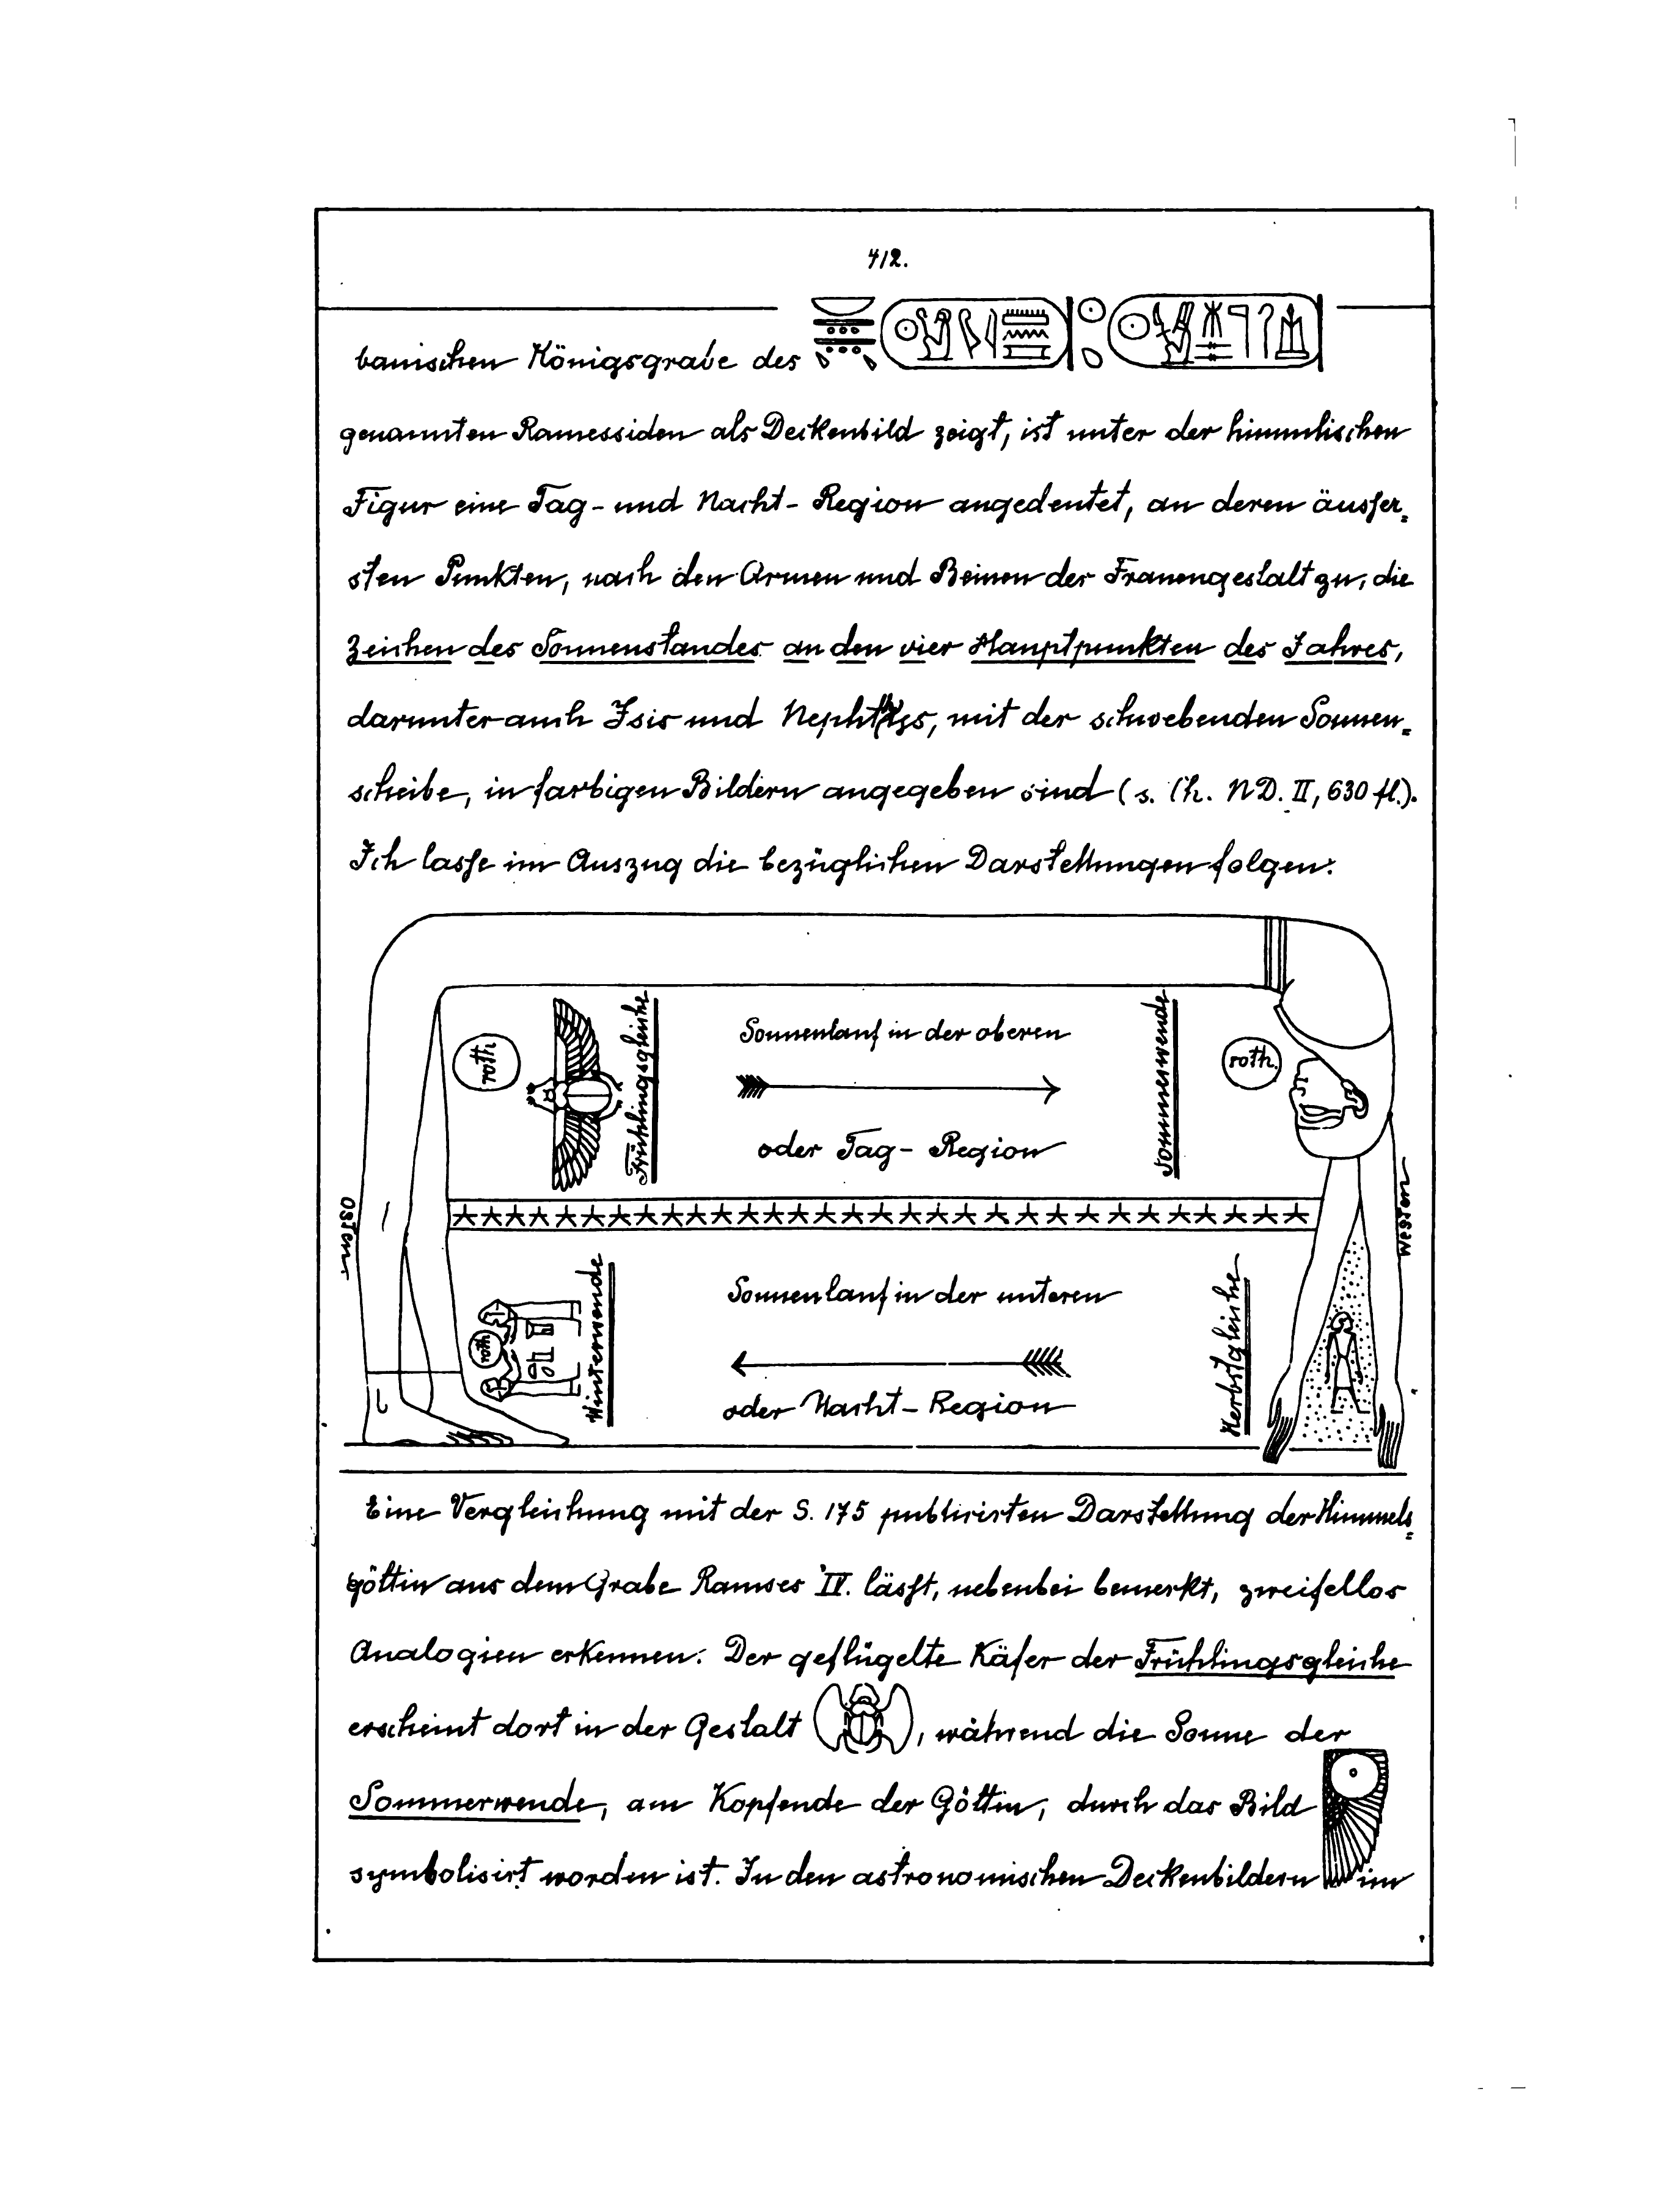 412.
banischen Königsgrabe des
genannten Ramessiden als Deckenbild zeigt, ist unter der himmlischen
Figur eine Tag- und Nacht-Region angedeutet, an deren äusser=
sten Punkten, nach den Armen und Beinen der Frauengestalt zu, die
Zeichen des Sonnenstandes an den vier Hauptpunkten des Jahres,
darunter auch Isis und Nephthys, mit der schwebenden Sonnen=
scheibe, in farbigen Bildern angegeben sind (s. Ch. ND. II, 630 fl.).
Ich lasse im Auszug die bezüglichen Darstellungen folgen:
roth
Frühlingsgleiche
Sonnenlauf in der oberen
oder Tag-Region
Sommerwende
roth.
Osten
Westen
roth
Winterwende
Sonnenlauf in der unteren
oder Nacht-Region
Herbstgleiche
Eine Vergleichung mit der S. 175 publicirten Darstellung der Himmels=
göttin aus dem Grabe Ramses IV. lässt, nebenbei bemerkt, zweifellos
Analogien erkennen. Der geflügelte Käfer der Frühlingsgleiche
erscheint dort in der Gestalt , während die Sonne der
Sommerwende, am Kopfende der Göttin, durch das Bild
symbolisirt worden ist. In den astronomischen Deckenbildern im